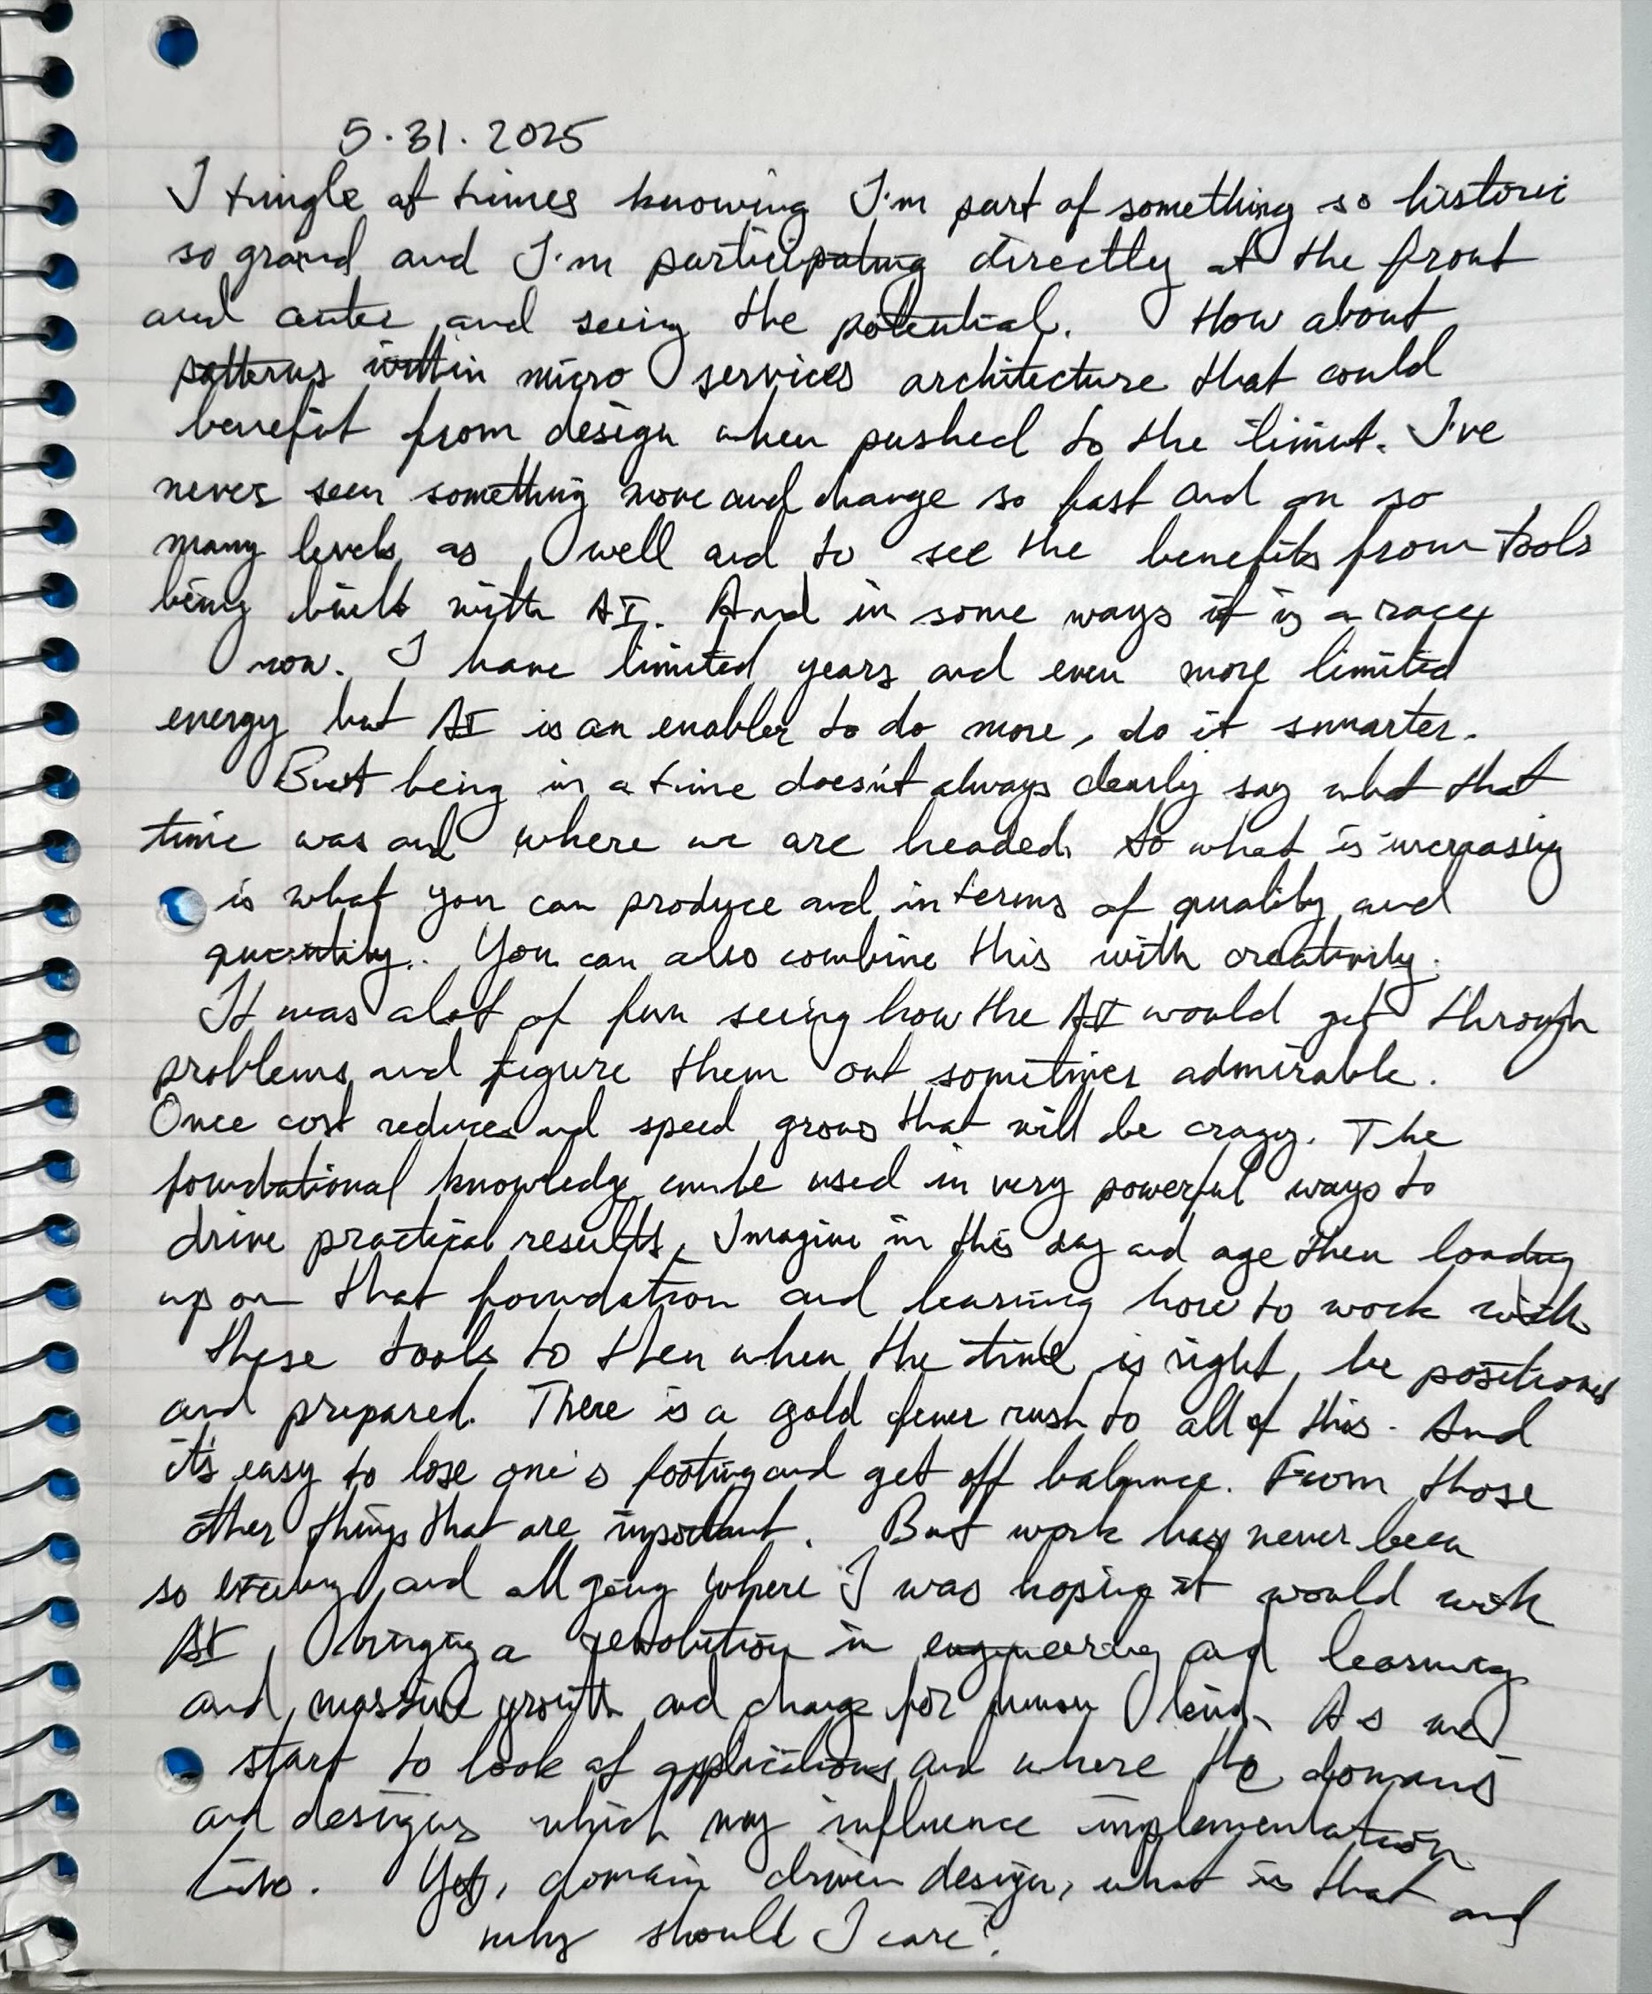 5.31.2025
I tingle at times knowing I'm part of something so historic
so grand and I'm participating directly at the front
and center and seeing the potential. How about
patterns within micro services architecture that could
benefit from design when pushed to the limit. I've
never seen something move and change so fast and on so
many levels as well and to see the benefits from tools
being built with AI. And in some ways it is a race
now. I have limited years and even more limited
energy but AI is an enabler to do more, do it smarter.
But being in a time doesn't always clearly say what that
time was and where we are headed. So what is increasing
is what you can produce and in terms of quality and
quantity.. You can also combine this with creativity.
It was alot of fun seeing how the AI would get through
problems and figure them out sometimes admirable.
Once cost reduces and speed grows that will be crazy. The
foundational knowledge can be used in very powerful ways to
drive practical results. Imagine in this day and age then loading
up on that foundation and learning how to work with
these tools to then when the time is right, be positioned
and prepared. There is a gold fever rush to all of this. And
it's easy to lose one's footing and get off balance. From those
other things that are important. But work has never been
so exciting and all going where I was hoping it would with
AI, bringing a revolution in engineering and learning
and massive growth and change for human kind. As we
start to look at applications and where the domains
and designs which may influence implementation
Yet, domain driven design, what is that and
why should I care?